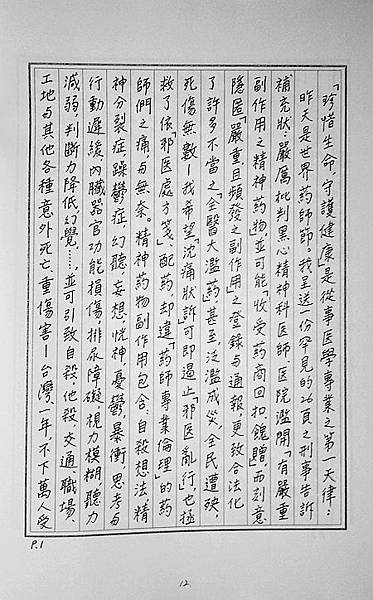 「珍惜生命、守護健康」是從事医学事業之第一天律:
昨天是世界药師節。我呈送一份罕見的26頁之刑事告訴
補充狀:嚴厲批判黑心精神科医師、医院濫開「有嚴重
副作用之精神药物」,並可能「收受药商回扣、餽贈」而刻意
隱匿「嚴重且頻發之副作用」之登錄与通報,更致合法化
了許多不當之「全醫大濫药」甚至泛濫成災、全民遭殃、
死傷無數!我希望「沈痛狀訴」可即遏止「邪医亂行」,也拯
救了依「邪医處方箋」、配药却違「药師專業倫理」的药
師們之痛、与無奈。精神药物副作用包含:自殺想法精
神分裂症躁鬱症、幻聽、妄想、恍神、憂鬱、暴衝、思考与
行動遲緩、內臟器官功能損傷、排尿障礙、視力模糊、聽力
減弱、判斷力降低、幻覺……,並可引致自殺、他殺、交通、職場、
工地与其他各種意外死亡、重傷害!台灣一年,不下萬人受
P.1
12